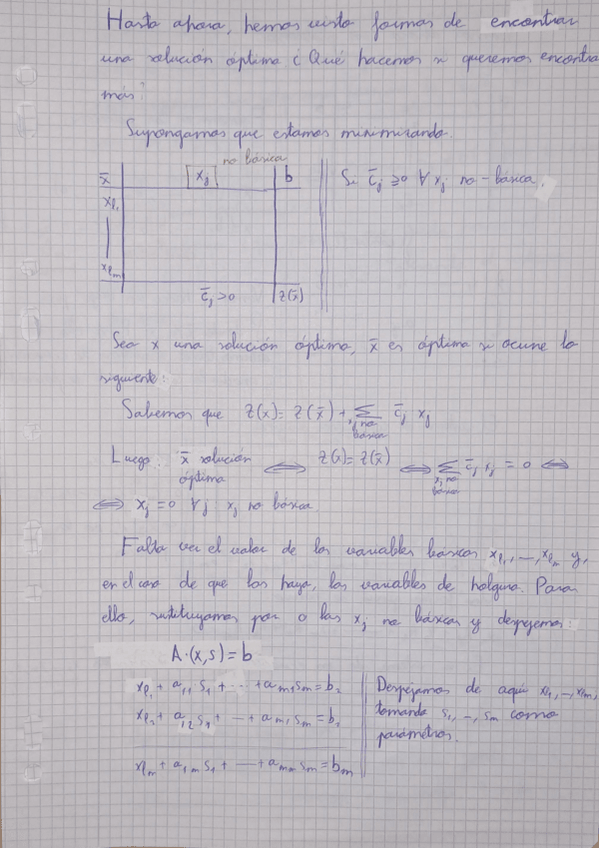 Hasta ahora, hemos visto formas de encontrar
una solución óptima ¿ Qué hacemos si queremos encontra
más?
Supongamos que estamos minimizando.
no básica
x̄ xⱼ b
x_{l₁}
x_{lₘ}
c̄ⱼ >0 z(x̄)
Si c̄ⱼ ⩾ 0 ∀ xⱼ no-básica,
Sea x una solución óptima, x̄ es óptima si ocurre lo
siguiente:
Sabemos que z(x) = z(x̄) + ∑_{xⱼ no básica} c̄ⱼ xⱼ
Luego: x̄ solución óptima ⟺ z(x) = z(x̄) ⟺ ∑_{xⱼ no básica} c̄ⱼ xⱼ = 0 ⟺
⟺ xⱼ = 0 ∀j: xⱼ no básica.
Falta ver el valor de las variables básicas x_{l₁}, —, x_{lₘ} y,
en el caso de que las haya, las variables de holgura. Para
ello, sustituyamos por 0 las xⱼ no básicas y despejemos:
A·(x,s) = b
x_{l₁} + a₁₁ s₁ + ··· + aₘ₁ sₘ = b₁
x_{l₂} + a₁₂ s₁ + — + aₘ₁ sₘ = b₂
x_{lₘ} + a₁ₘ s₁ + — + aₘₘ sₘ = bₘ
Despejamos de aquí x_{l₁}, —, x_{lₘ},
tomando s₁, —, sₘ como
parámetros.